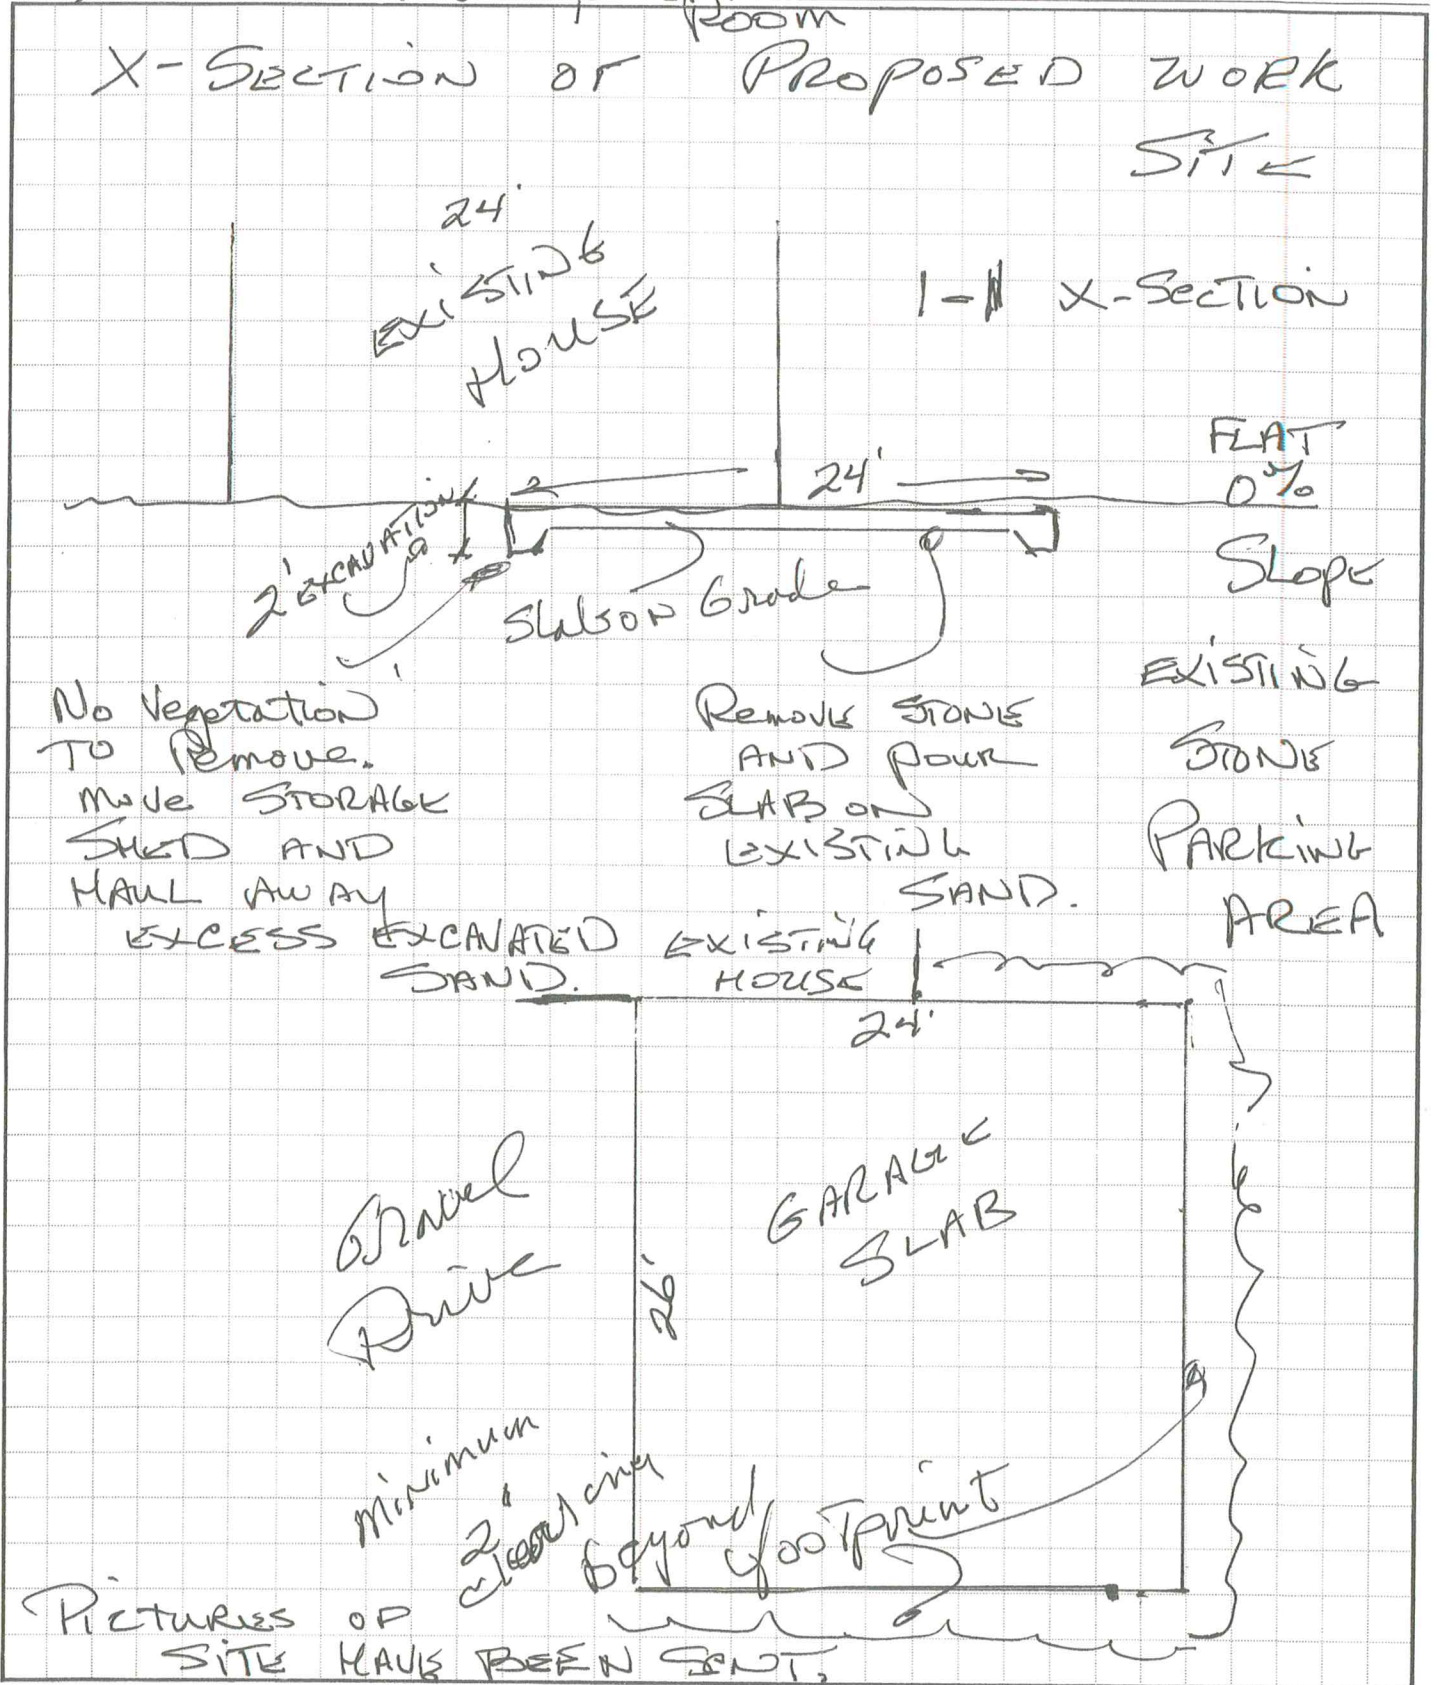 Room
X-SECTION OF PROPOSED WORK
SITE
24'
EXISTING
HOUSE
1-1 X-SECTION
FLAT
0%
SLOPE
24'
2' EXCAVATION
Slab on Grade
No Vegetation
TO Remove.
Move STORAGE
SHED AND
HAUL AWAY
EXCESS EXCAVATED
SAND.
Remove STONE
AND POUR
SLAB ON
EXISTING
SAND.
EXISTING
STONE
PARKING
AREA
EXISTING
HOUSE
24'
Gravel
Drive
26'
GARAGE
SLAB
minimum
2' clearing
beyond footprint
PICTURES OF
SITE HAVE BEEN SENT.